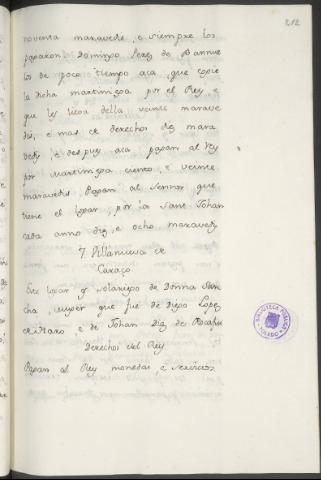 212
noventa maravedis, e siempre los
pagaron Domingo Perez de Bannue
los de poco tiempo aca, que coxie
la dicha martiniega por el Rey e
que les lieva della veinte marave
dis, e mas de derechos diez mara
vedis, e despues aca pagan al Rey
por martiniega ciento, e veinte
maravedis. Pagan al Sennor que
tiene el logar, por la Sant Johan
cada anno diez, e ocho maravedis
7. Villanueva de
Carazo
Este logar es solariego de Donna San
cha, muger que fue de Diego Lopez
de Haro e de Johan Diaz de Rocafu
Derechos del Rey
Pagan al Rey monedas, e servicios
BIBLIOTECA PUBLICA
TOLEDO